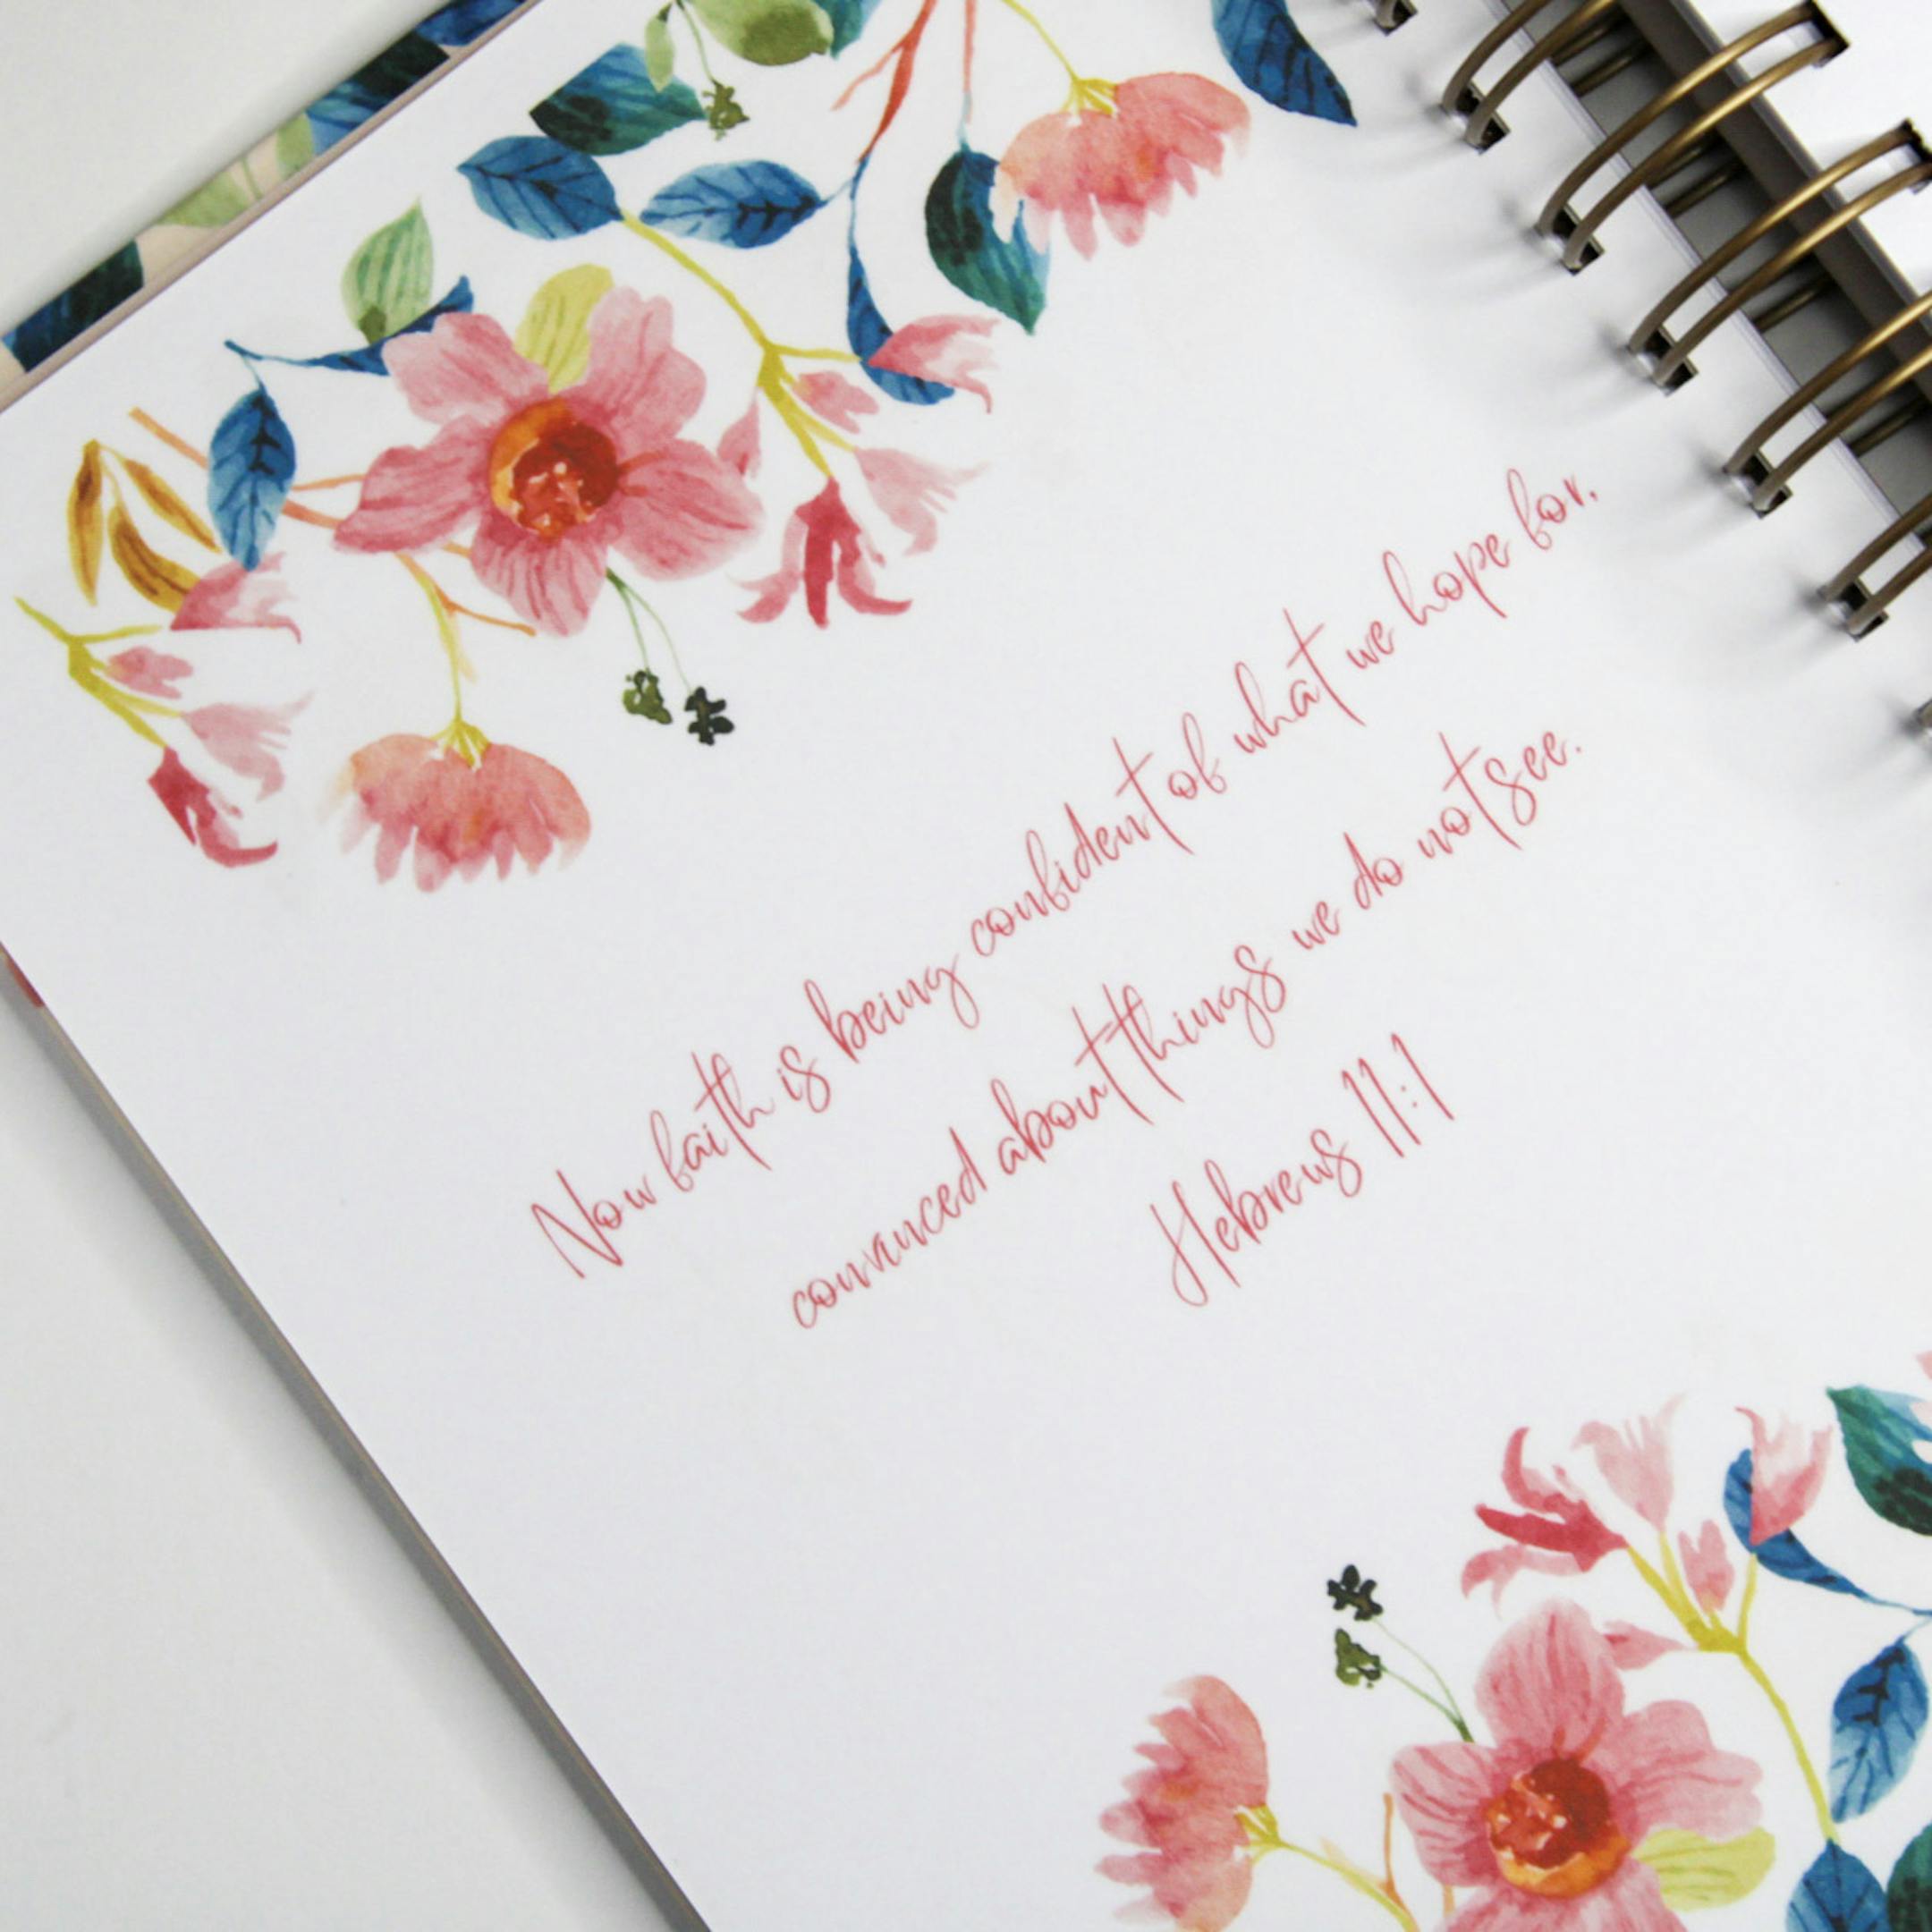 Now faith is being confident of what we hope for,
convinced about things we do not see.
Hebrews 11:1